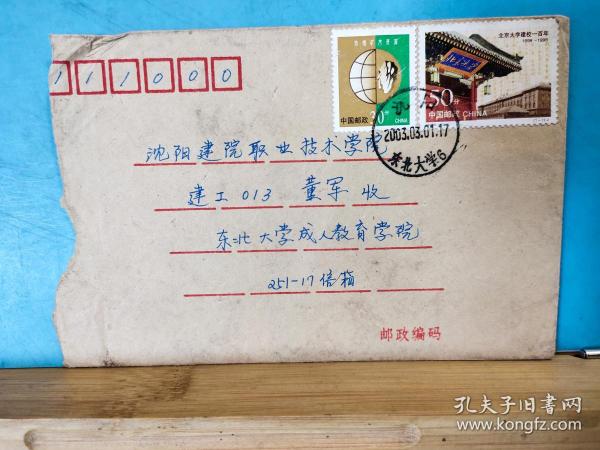 111000
北京大学建校一百年
1898-1998
50分
中国邮政 CHINA
中国邮政
30分
CHINA
2003.03.01.17
东北大学6
沈阳建院职业技术学院
建工013 董军 收
东北大学成人教育学院
251-17信箱
邮政编码
孔夫子旧书网
www.kongfz.com